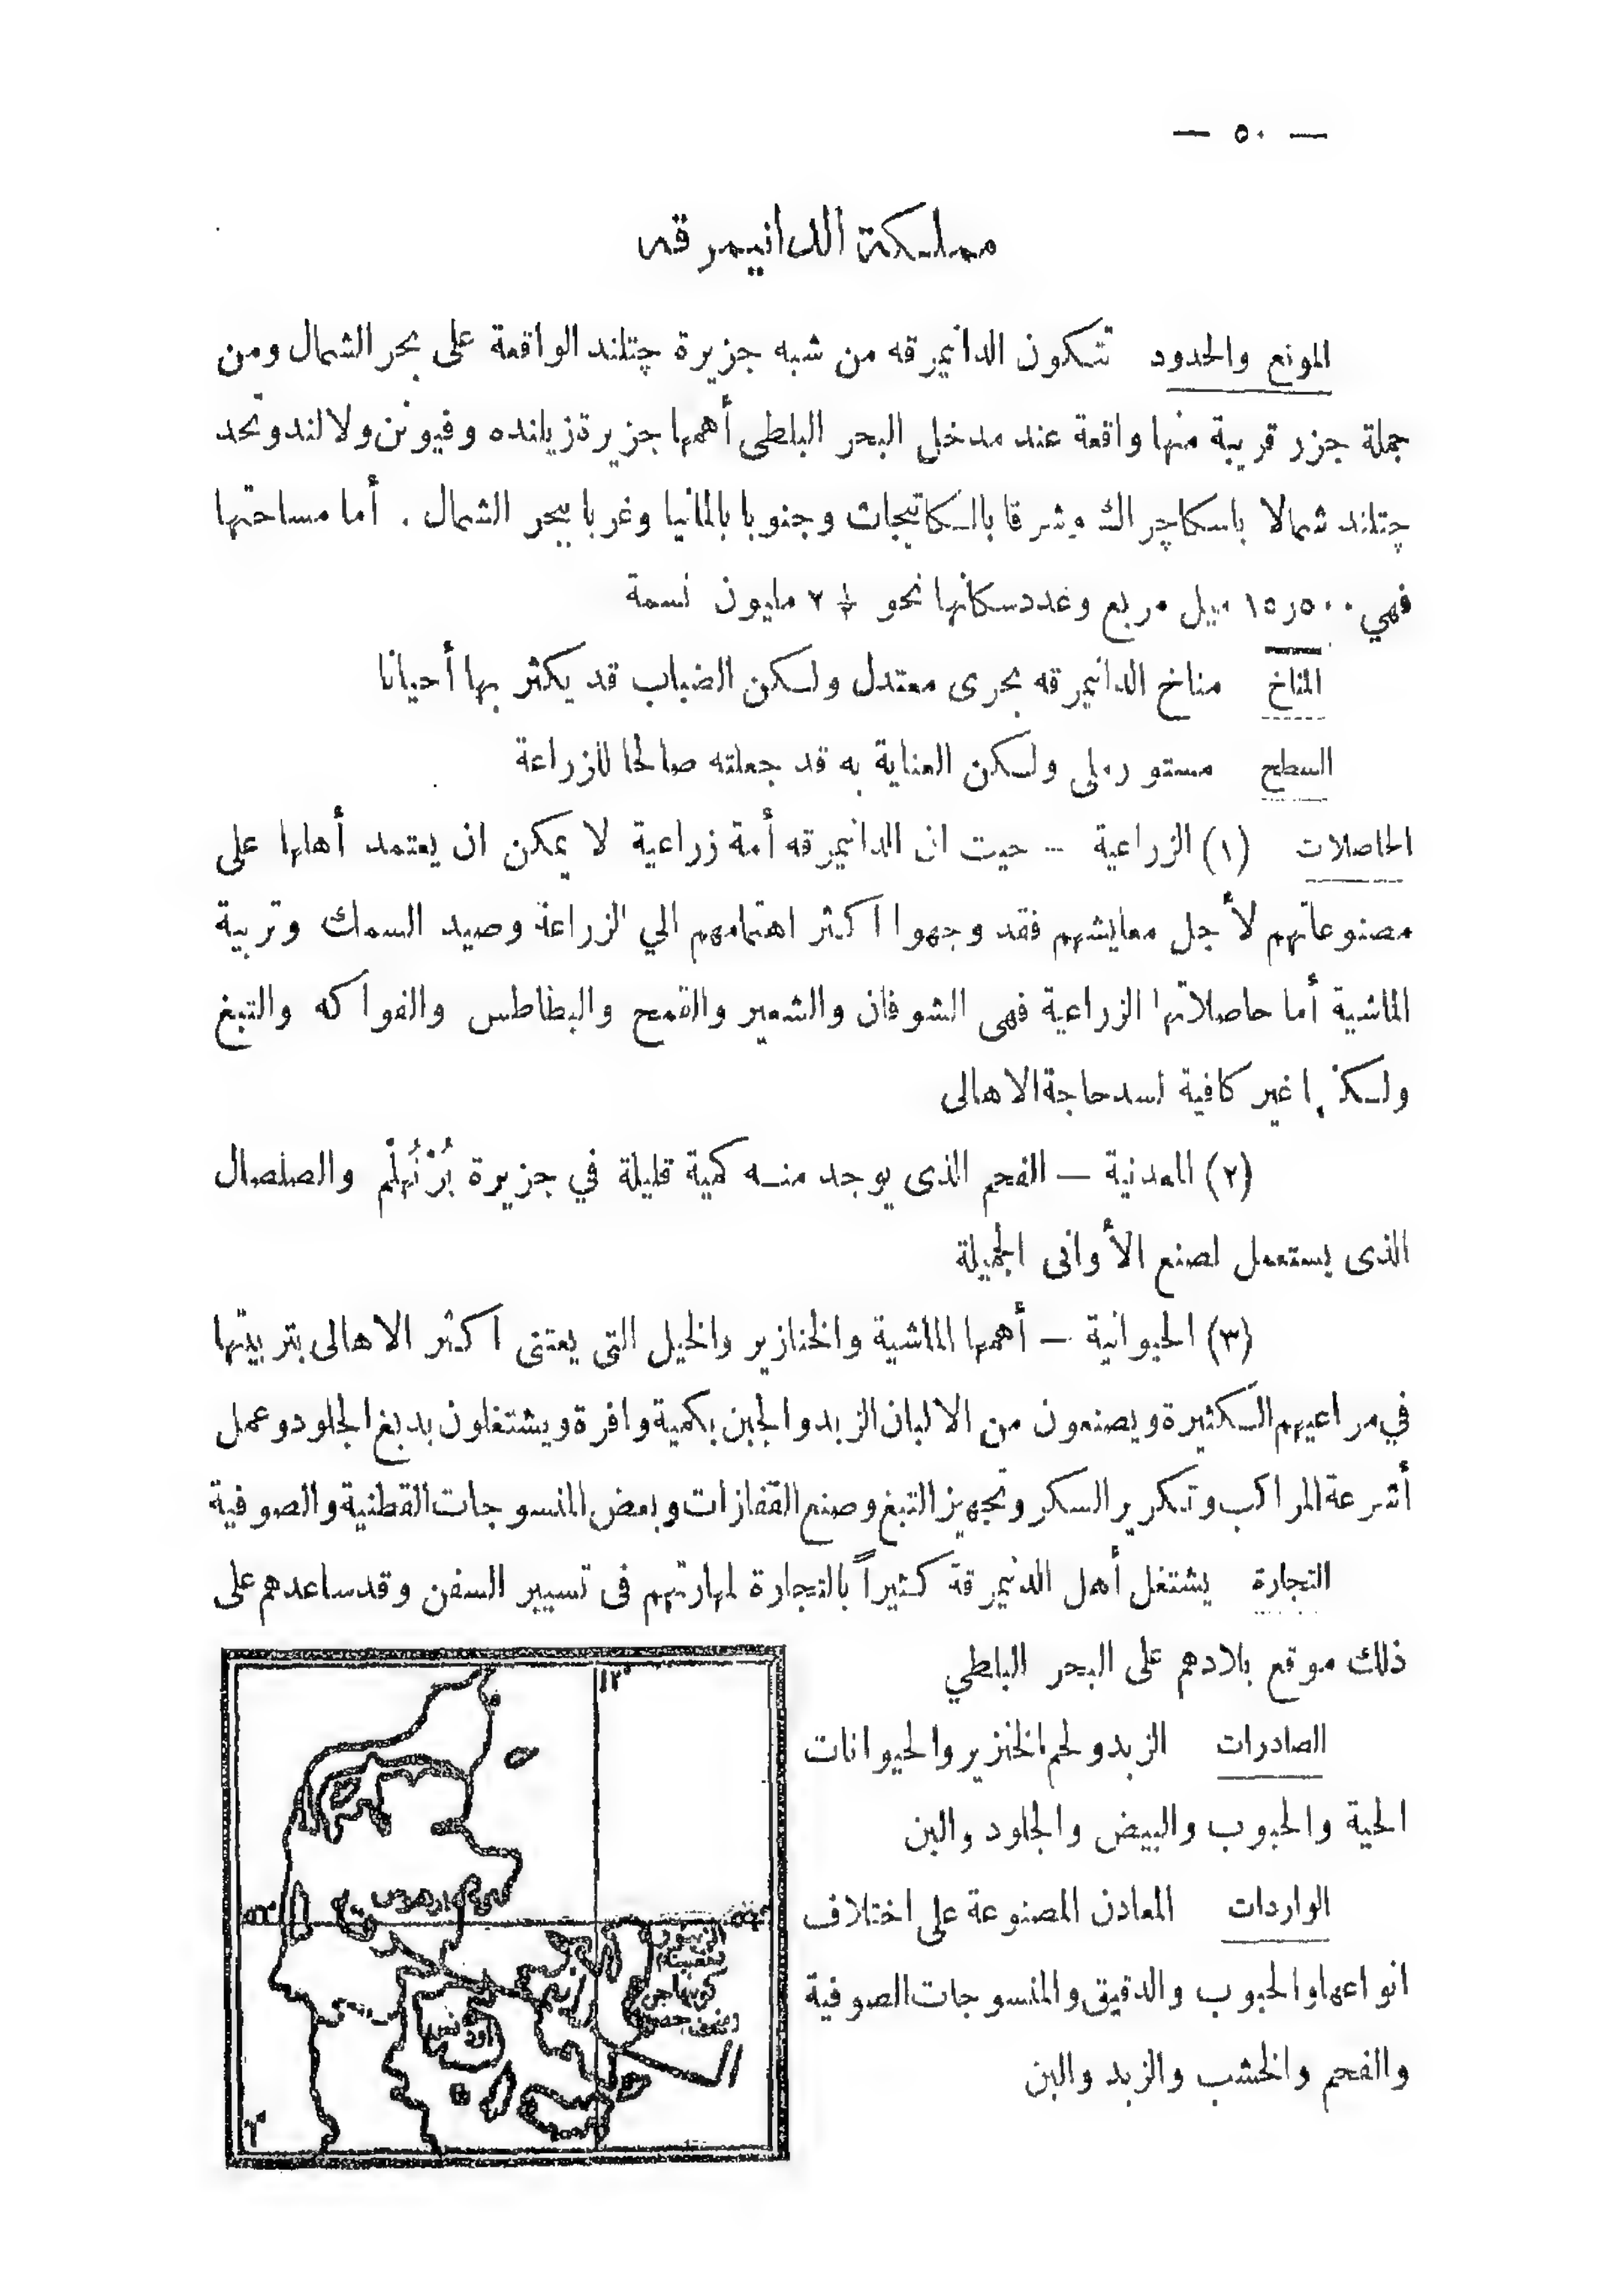 — ٥٠ —
مملكة الدانيمرقه
الموقع والحدود تتكون الدانيمرقه من شبه جزيرة چتلند الواقعة على بحر الشمال ومن
جملة جزر قريبة منها واقعة عند مدخل البحر البلطى أهمها جزيرة زيلانده وفيونن ولالند وتحد
چتلند شمالا باسكاچراك وشرقا بالكاتيجات وجنوبا بالمانيا وغربا ببحر الشمال . أما مساحتها
فهي ١٥٫٥٠٠ ميل مربع وعدد سكانها نحو ½ ٢ مليون نسمة
المناخ مناخ الدانيمرقه بحرى معتدل ولكن الضباب قد يكثر بها أحيانا
السطح مستو رملى ولكن العناية به قد جعلته صالحا للزراعة
الحاصلات (١) الزراعية — حيت ان الدانيمرقه أمة زراعية لا يمكن ان يعتمد أهلها على
مصنوعاتهم لأجل معايشهم فقد وجهوا اكثر اهتمامهم الي الزراعة وصيد السمك وتربية
الماشية أما حاصلاتها الزراعية فهى الشوفان والشعير والقمح والبطاطس والفواكه والتبغ
ولكنها غير كافية لسد حاجة الاهالى
(٢) المعدنية — الفحم الذى يوجد منه كمية قليلة في جزيرة بُرْنُهلْم والصلصال
الذى يستعمل لصنع الأوانى الجميلة
(٣) الحيوانية — أهمها الماشية والخنازير والخيل التى يعتنى اكثر الاهالى بتربيتها
في مراعيهم الكثيرة ويصنعون من الالبان الزبد والجبن بكمية وافرة ويشتغلون بدبغ الجلود وعمل
أشرعة المراكب وتكرير السكر وتجهيز التبغ وصنع القفازات وبعض المنسوجات القطنية والصوفية
التجارة يشتغل أهل الدنيمرقة كثيراً بالتجارة لمهارتهم فى تسيير السفن وقد ساعدهم على
ذلك موقع بلادهم على البحر البلطي
الصادرات الزبد ولحم الخنزير والحيوانات
الحية والحبوب والبيض والجلود والبن
الواردات المعادن المصنوعة على اختلاف
انواعها والحبوب والدقيق والمنسوجات الصوفية
والفحم والخشب والزبد والبن
١٢°